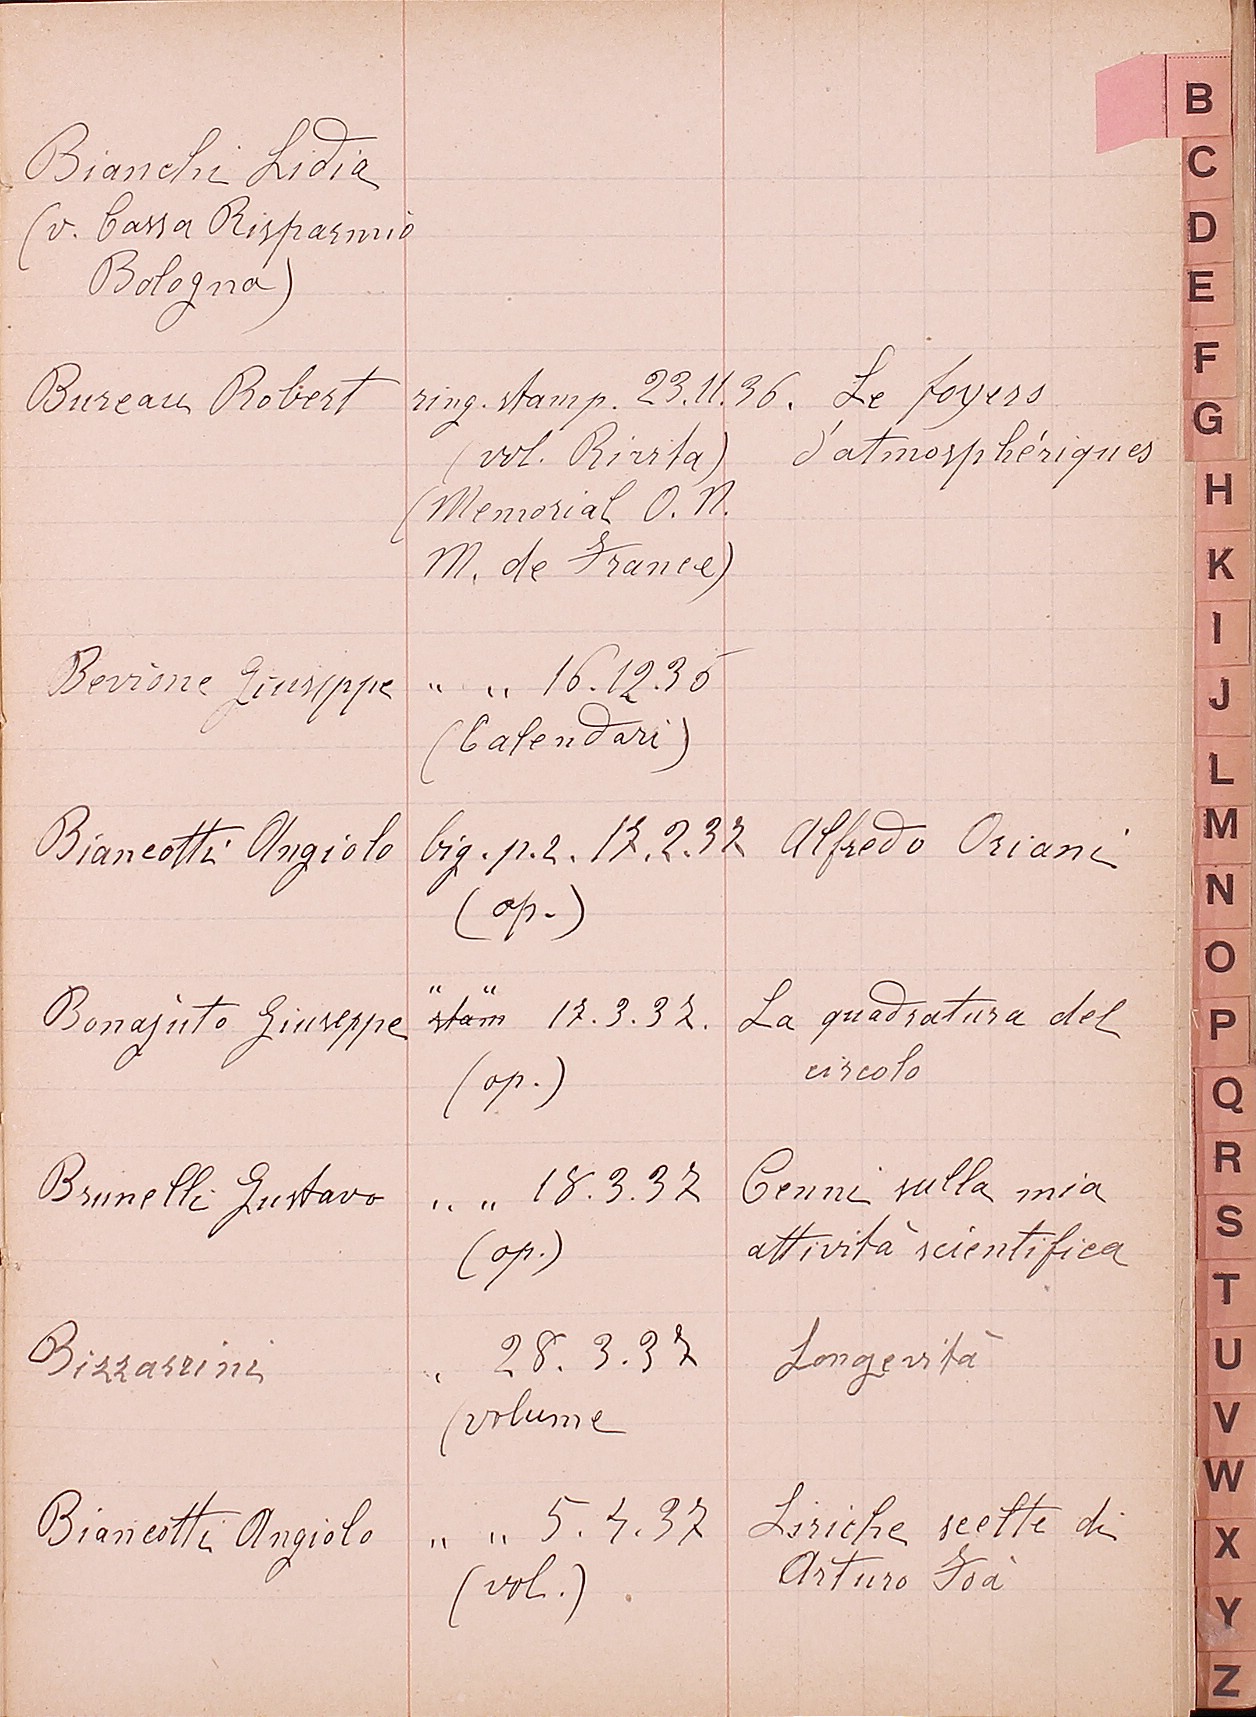 Bianchi Lidia
(v. Cassa Risparmio
Bologna)
Bureau Robert ring. stamp. 23.11.36. Le foyers
(vol. Rivista) d'atmosphériques
(Memorial O. N.
M. de France)
Bevione Giuseppe " " 16.12.36
(Calendari)
Biancotti Angiolo big. p. 2. 17.2.37 Alfredo Oriani
(op.)
" "
Bonajuto Giuseppe stam 17.3.37. La quadratura del
(op.) circolo
Brunelli Gustavo " " 18.3.37 Cenni sulla mia
(op.) attività scientifica
Bizzarrini " 28.3.37 Longevità
(volume
Biancotti Angiolo " " 5.4.37 Liriche scelte di
(vol.) Arturo Foà
B
C
D
E
F
G
H
K
I
J
L
M
N
O
P
Q
R
S
T
U
V
W
X
Y
Z